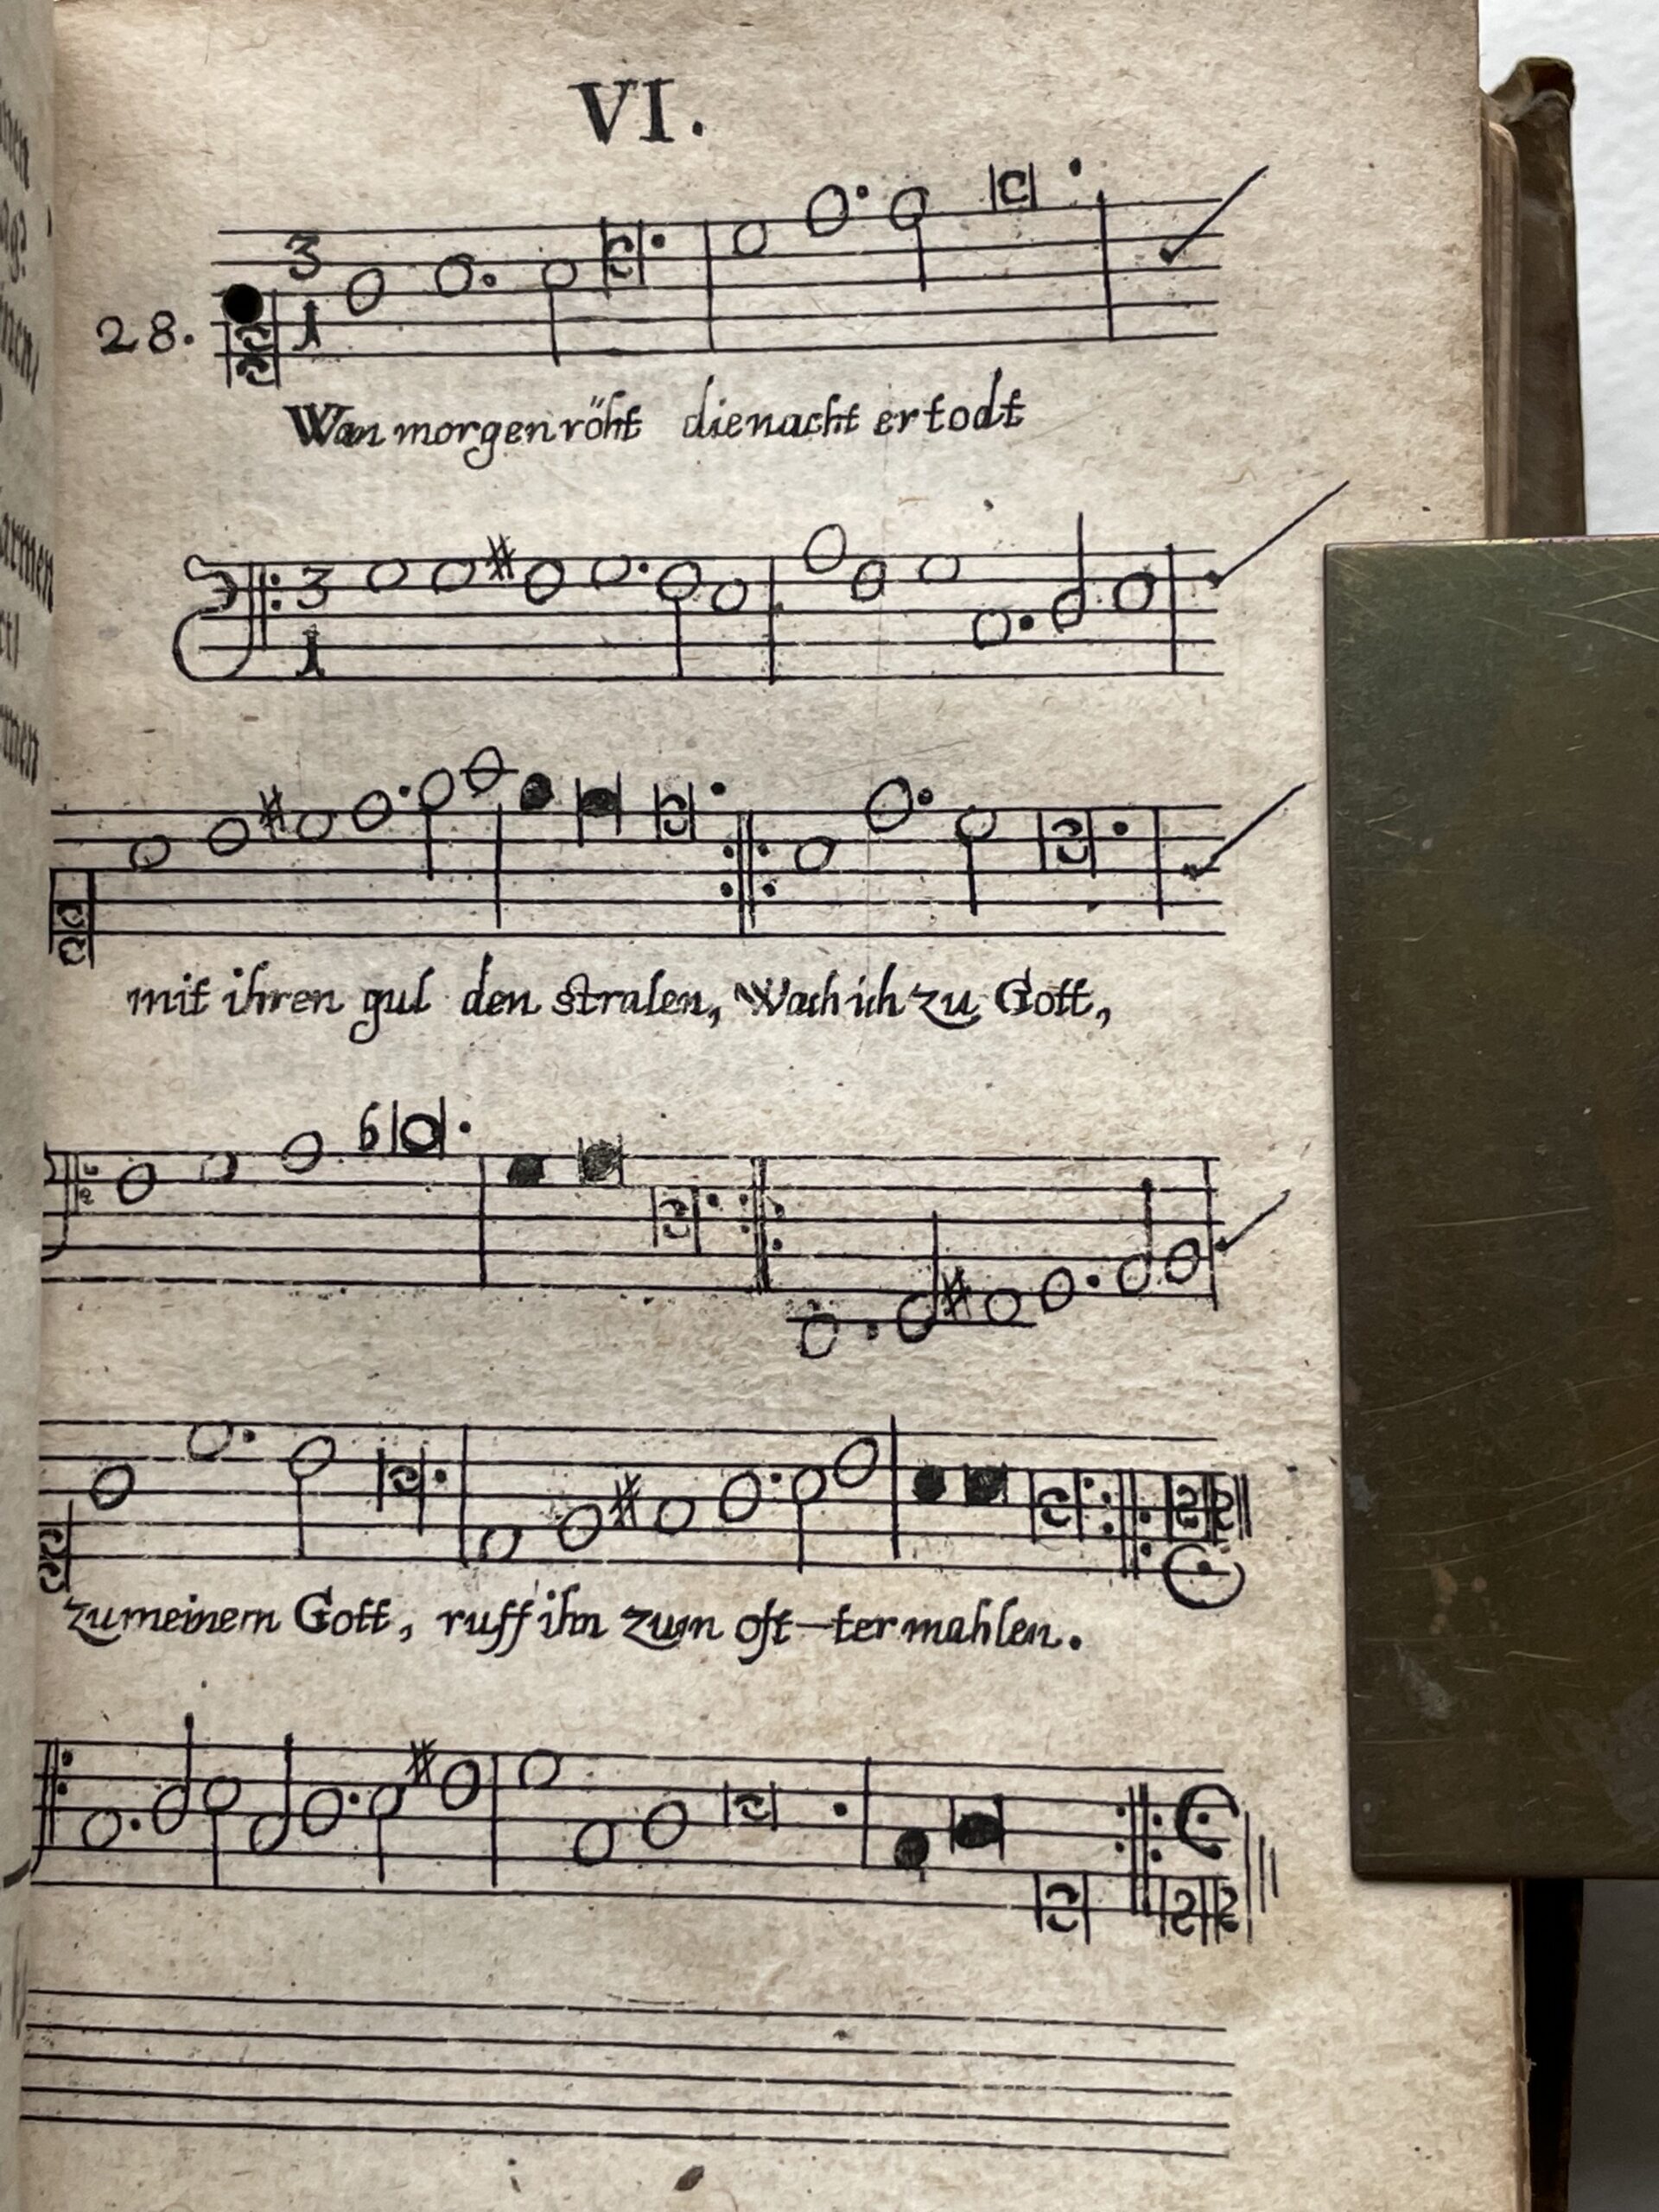 VI.
28.
3
1
Wan morgenröht die nacht ertodt
3
1
mit ihren gul den stralen, Wach ich zu Gott,
zu meinem Gott, ruff ihn zum oft-termahlen.